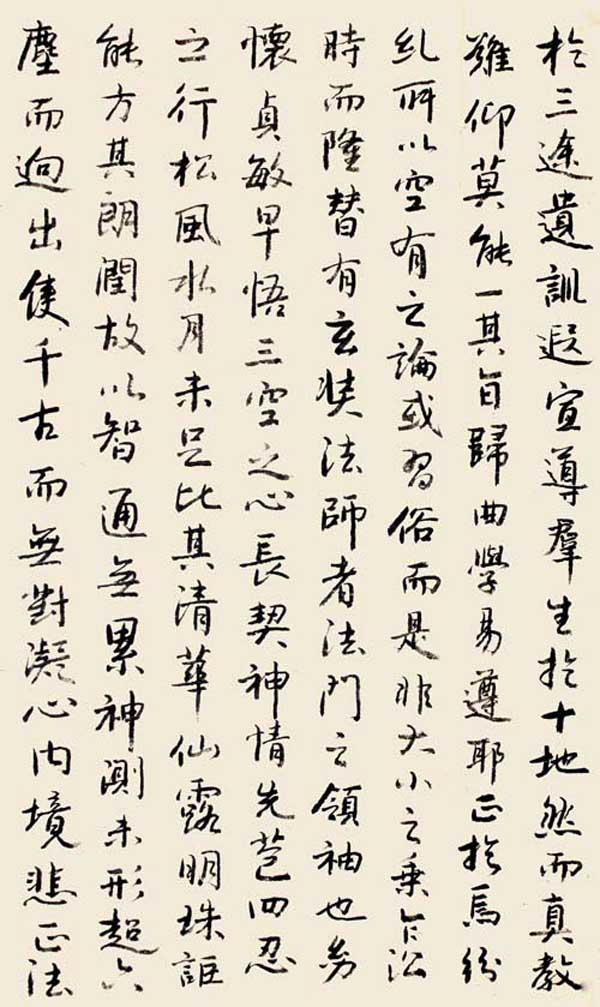 於三途遺訓遐宣導羣生於十地然而真教
難仰莫能一其旨歸曲學易遵耶正於焉紛
糺所以空有之論或習俗而是非大小之乗乍㳂
時而隆替有玄奘法師者法門之領袖也幼
懷貞敏早悟三空之心長契神情先苞四忍
之行松風水月未足比其清華仙露明珠詎
能方其朗潤故以智通無累神測未形超六
塵而逈出使千古而無對凝心内境悲正法